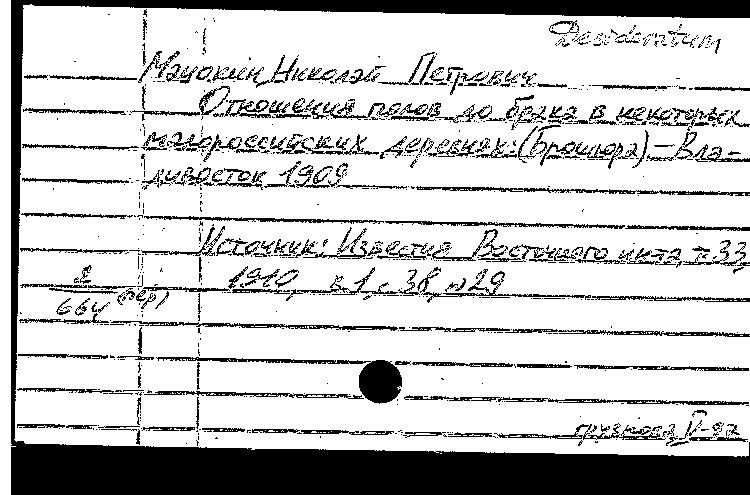 Desideratum
Мацокин, Николай Петрович
Отношения полов до брака в некоторых
малороссийских деревнях: (Брошюра) - Вла-
дивосток 1909
Источник: Известия Восточного ин-та, т. 33,
1910, в.1, с. 38, №29
2
664 (пер)
V-92